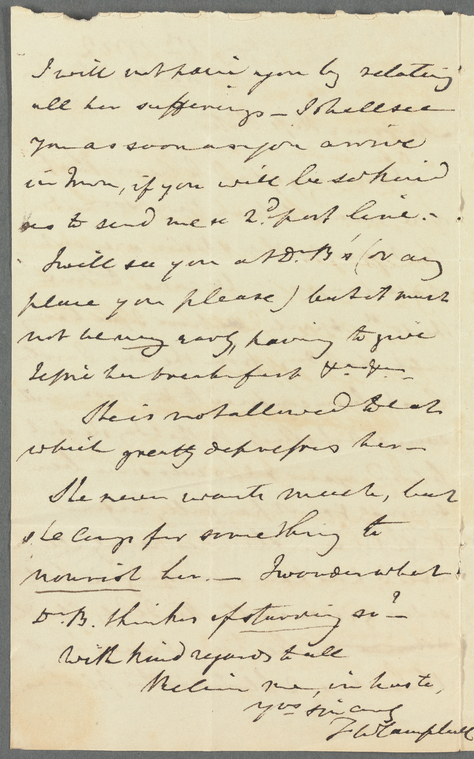 I will not pain you by relating
all her sufferings – I shall see
you as soon as you arrive
in Town, if you will be so kind
as to send me a 2d. post line. –
I will see you at Dr. B's (or any
place you please) but it must
not be very early, having to give
her breakfast
She is not allowed to eat
which greatly depresses her –
She never wants much, but
she longs for something to
nourish her. – I wonder what
Dr. B. thinks of starving so? –
With kind regards to all
Believe me, in haste,
yrs sincerely
Campbell